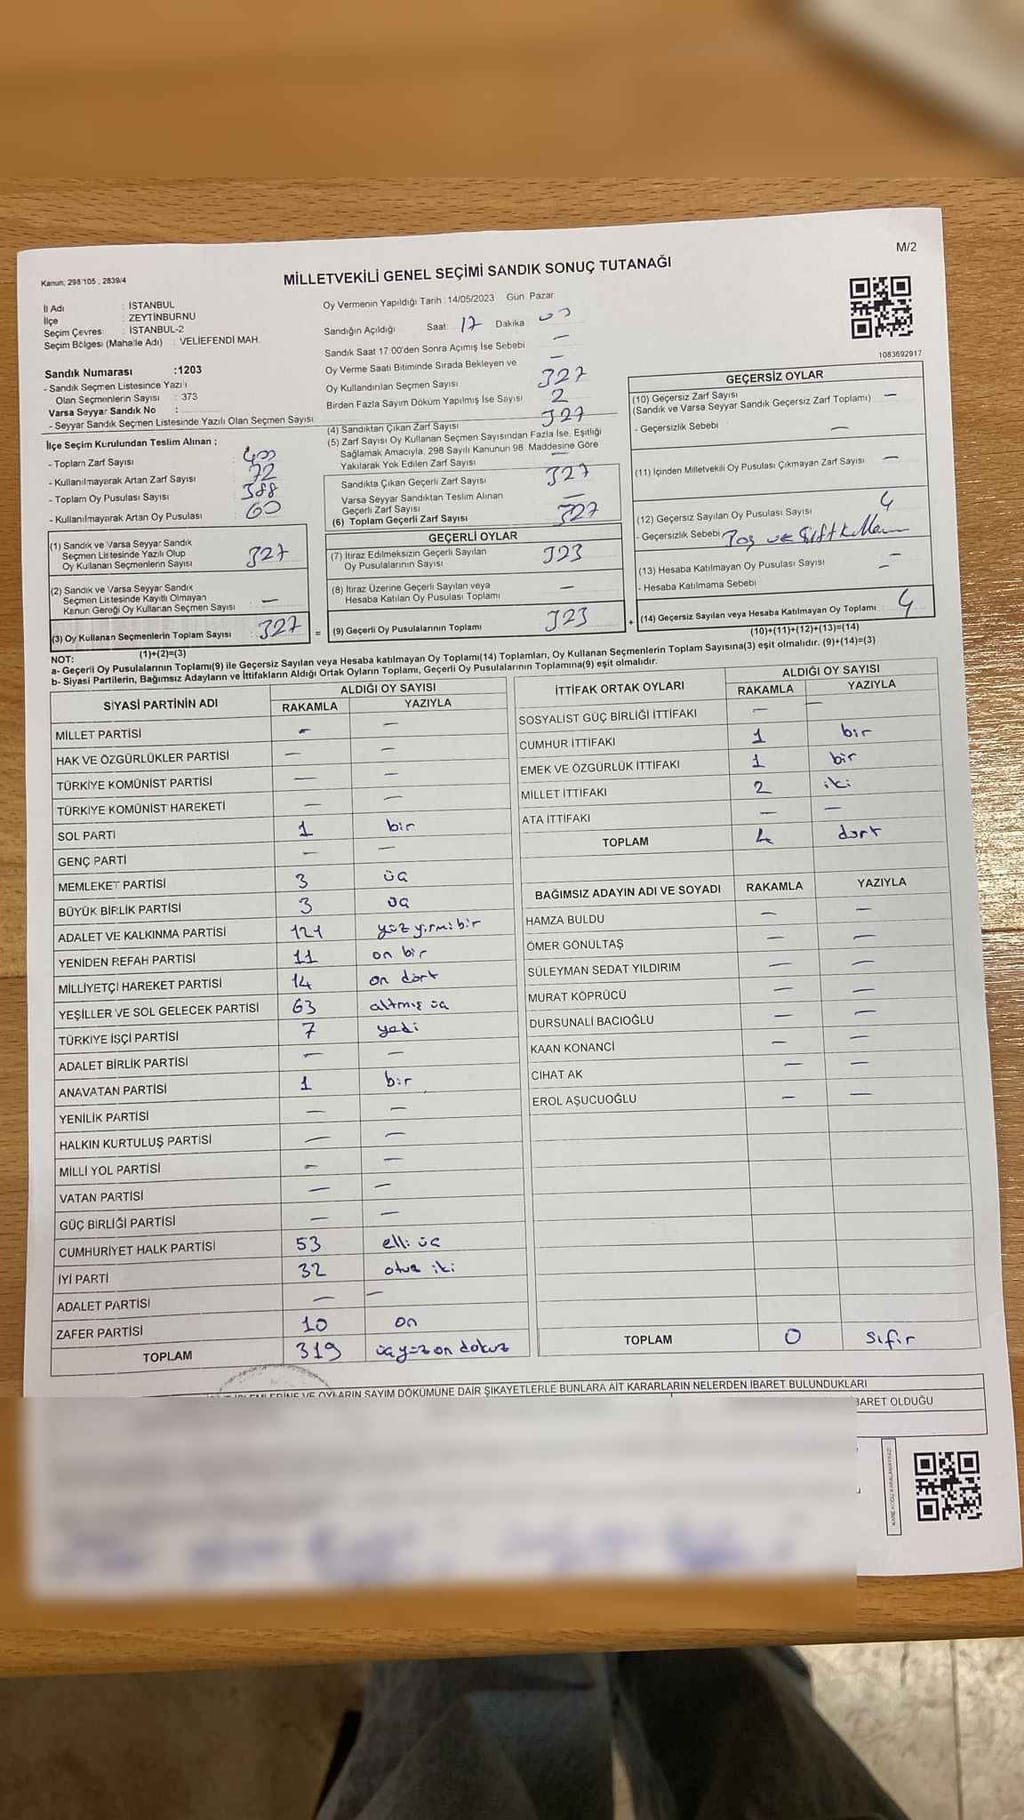 M/2
Kanun; 298/105 , 2839/4
MİLLETVEKİLİ GENEL SEÇİMİ SANDIK SONUÇ TUTANAĞI
İl Adı : İSTANBUL
İlçe : ZEYTİNBURNU
Seçim Çevres : İSTANBUL-2
Seçim Bölgesi (Mahalle Adı) : VELİEFENDİ MAH.
Sandık Numarası :1203
- Sandık Seçmen Listesince Yazılı
Olan Seçmenlerin Sayısı : 373
Varsa Seyyar Sandık No :
- Seyyar Sandık Seçmen Listesinde Yazılı Olan Seçmen Sayısı
İlçe Seçim Kurulundan Teslim Alınan ;
- Toplam Zarf Sayısı : 400
- Kullanılmayarak Artan Zarf Sayısı : 72
- Toplam Oy Pusulası Sayısı : 388
- Kullanılmayarak Artan Oy Pusulası : 60
(1) Sandık ve Varsa Seyyar Sandık
Seçmen Listesinde Yazılı Olup
Oy Kullanan Seçmenlerin Sayısı 327
(2) Sandık ve Varsa Seyyar Sandık
Seçmen Listesinde Kayıtlı Olmayan
Kanun Gereği Oy Kullanan Seçmen Sayısı —
(3) Oy Kullanan Seçmenlerin Toplam Sayısı 327
(1)+(2)=(3)
Oy Vermenin Yapıldığı Tarih : 14/05/2023 Gün Pazar
Sandığın Açıldığı Saat: 17 Dakika 00
Sandık Saat 17:00'den Sonra Açımış İse Sebebi —
Oy Verme Saati Bitiminde Sırada Bekleyen ve —
Oy Kullandırılan Seçmen Sayısı 327
Birden Fazla Sayım Döküm Yapılmış İse Sayısı 2
(4) Sandıktan Çıkan Zarf Sayısı 327
(5) Zarf Sayısı Oy Kullanan Seçmen Sayısından Fazla İse, Eşitliği
Sağlamak Amacıyla, 298 Sayılı Kanunun 98. Maddesine Göre
Yakılarak Yok Edilen Zarf Sayısı —
Sandıkta Çıkan Geçerli Zarf Sayısı 327
Varsa Seyyar Sandıktan Teslim Alınan
Geçerli Zarf Sayısı —
(6) Toplam Geçerli Zarf Sayısı 327
GEÇERLİ OYLAR
(7) İtiraz Edilmeksizin Geçerli Sayılan
Oy Pusulalarının Sayısı 323
(8) İtiraz Üzerine Geçerli Sayılan veya
Hesaba Katılan Oy Pusulası Toplamı —
= (9) Geçerli Oy Pusulalarının Toplamı 323 +
1083692917
GEÇERSİZ OYLAR
(10) Geçersiz Zarf Sayısı
(Sandık ve Varsa Seyyar Sandık Geçersiz Zarf Toplamı) —
- Geçersizlik Sebebi —
(11) İçinden Milletvekili Oy Pusulası Çıkmayan Zarf Sayısı —
(12) Geçersiz Sayılan Oy Pusulası Sayısı 4
- Geçersizlik Sebebi Boş ve Çift kullanım
(13) Hesaba Katılmayan Oy Pusulası Sayısı —
- Hesaba Katılmama Sebebi —
(14) Geçersiz Sayılan veya Hesaba Katılmayan Oy Toplamı 4
(10)+(11)+(12)+(13)=(14)
NOT:
a- Geçerli Oy Pusulalarının Toplamı(9) ile Geçersiz Sayılan veya Hesaba katılmayan Oy Toplamı(14) Toplamları, Oy Kullanan Seçmenlerin Toplam Sayısına(3) eşit olmalıdır. (9)+(14)=(3)
b- Siyasi Partilerin, Bağımsız Adayların ve İttifakların Aldığı Ortak Oyların Toplamı, Geçerli Oy Pusulalarının Toplamına(9) eşit olmalıdır.
SİYASİ PARTİNİN ADI ALDIĞI OY SAYISI
RAKAMLA YAZIYLA
MİLLET PARTİSİ — —
HAK VE ÖZGÜRLÜKLER PARTİSİ — —
TÜRKİYE KOMÜNİST PARTİSİ — —
TÜRKİYE KOMÜNİST HAREKETİ — —
SOL PARTİ 1 bir
GENÇ PARTİ — —
MEMLEKET PARTİSİ 3 üç
BÜYÜK BİRLİK PARTİSİ 3 üç
ADALET VE KALKINMA PARTİSİ 121 yüz yirmi bir
YENİDEN REFAH PARTİSİ 11 on bir
MİLLİYETÇİ HAREKET PARTİSİ 14 on dört
YEŞİLLER VE SOL GELECEK PARTİSİ 63 altmış üç
TÜRKİYE İŞÇİ PARTİSİ 7 yedi
ADALET BİRLİK PARTİSİ — —
ANAVATAN PARTİSİ 1 bir
YENİLİK PARTİSİ — —
HALKIN KURTULUŞ PARTİSİ — —
MİLLİ YOL PARTİSİ — —
VATAN PARTİSİ — —
GÜÇ BİRLİĞİ PARTİSİ — —
CUMHURİYET HALK PARTİSİ 53 elli üç
İYİ PARTİ 32 otuz iki
ADALET PARTİSİ — —
ZAFER PARTİSİ 10 on
TOPLAM 319 üçyüz on dokuz
İTTİFAK ORTAK OYLARI ALDIĞI OY SAYISI
RAKAMLA YAZIYLA
SOSYALİST GÜÇ BİRLİĞİ İTTİFAKI — —
CUMHUR İTTİFAKI 1 bir
EMEK VE ÖZGÜRLÜK İTTİFAKI 1 bir
MİLLET İTTİFAKI 2 iki
ATA İTTİFAKI — —
TOPLAM 4 dört
BAĞIMSIZ ADAYIN ADI VE SOYADI RAKAMLA YAZIYLA
HAMZA BULDU — —
ÖMER GÖNÜLTAŞ — —
SÜLEYMAN SEDAT YILDIRIM — —
MURAT KÖPRÜCÜ — —
DURSUNALİ BACIOĞLU — —
KAAN KONANCİ — —
CİHAT AK — —
EROL AŞUCUOĞLU — —
TOPLAM 0 sıfır
VE OYLARIN SAYIM DÖKÜMÜNE DAİR ŞİKAYETLERLE BUNLARA AİT KARARLARIN NELERDEN İBARET BULUNDUKLARI
BARET OLDUĞU